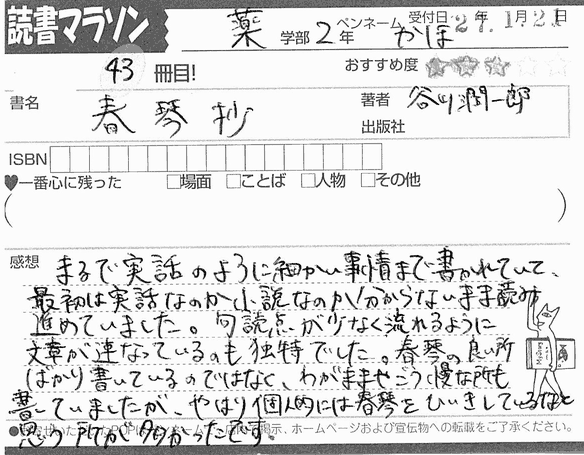 読書マラソン
薬 学部 2 年 ペンネーム かほ 受付日 27年 1月21日
43 冊目! おすすめ度
書名 春琴抄 著者 谷川潤一郎
出版社
ISBN
♥一番心に残った □場面 □ことば □人物 □その他
( )
感想 まるで実話のように細かい事情まで書かれていて、
最初は実話なのか小説なのか分からないまま読み
進めていました。句読点が少なく流れるように
文章が連なっているのも独特でした。春琴の良い所
ばかり書いているのではなく、わがままやごう慢な所も
書いていましたが、やはり個人的には春琴をひいきしているなと
思う所が多かったです。
POP ホームページおよび宣伝物への転載をご了承ください。